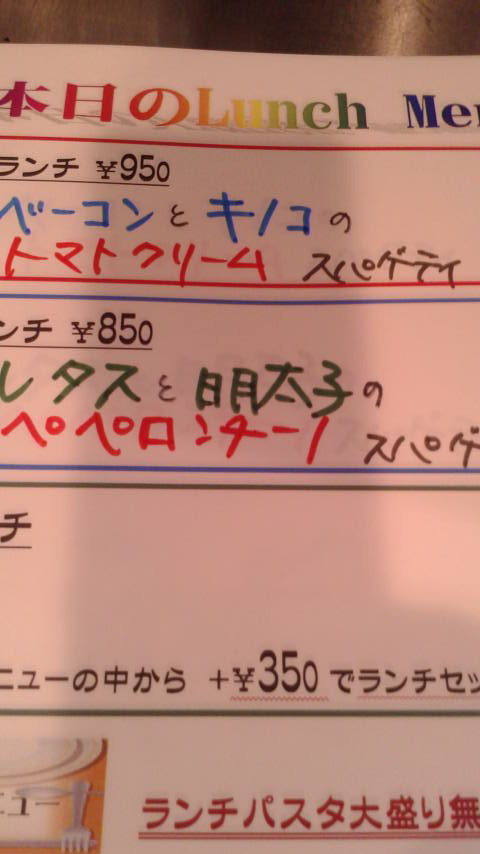 本日のLunch Me
ランチ ¥950
ベーコンとキノコの
トマトクリーム スパゲティ
ンチ ¥850
レタスと明太子の
ペペロンチーノ スパゲ
チ
ニューの中から +¥350 でランチセッ
ニュー
ランチパスタ大盛り無